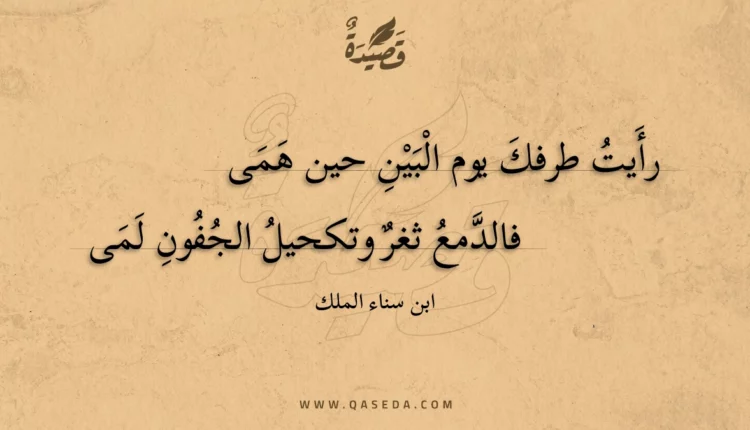 قَصِيدَةٌ
رأَيتُ طرفكَ يوم الْبَيْنِ حين هَمَى
فالدَّمعُ ثغرٌ وتكحيلُ الجُفُونِ لَمَى
ابن سناء الملك
WWW.QASEDA.COM